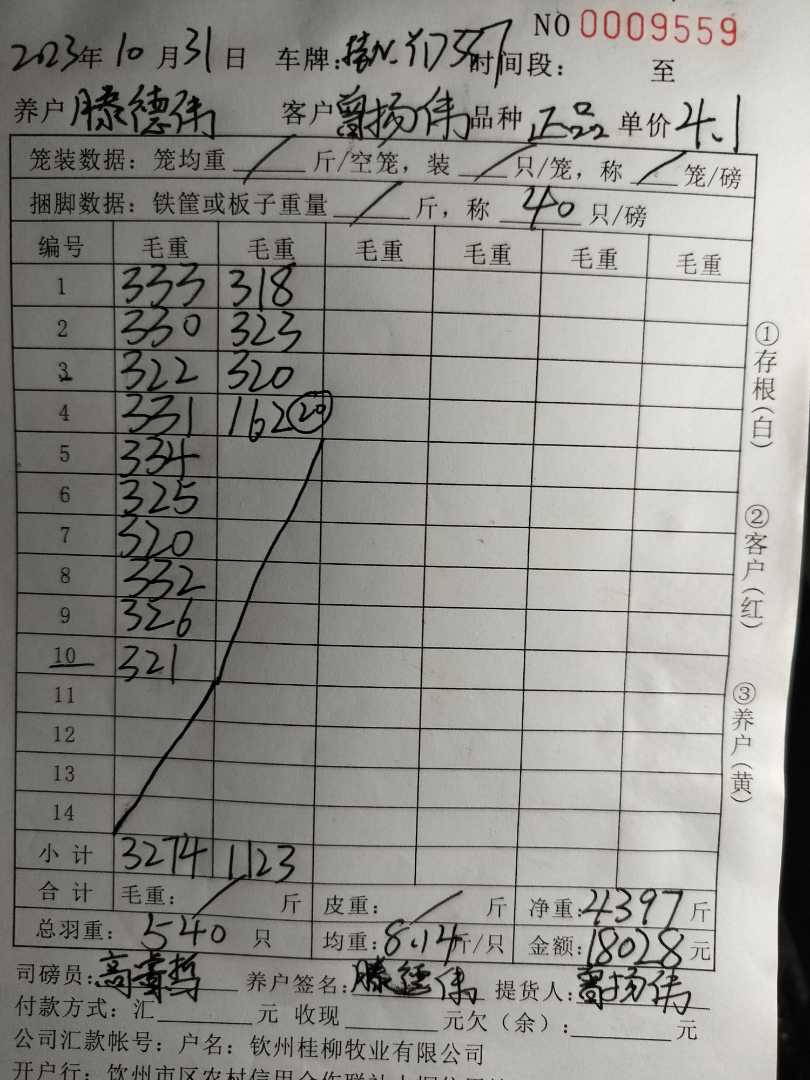 NO 0009559
2023年10月31日 车牌: 时间段: 至
养户 滕德伟 客户 曾扬伟 品种 正品 单价 4.1
笼装数据:笼均重 / 斤/空笼,装 / 只/笼,称 / 笼/磅
捆脚数据:铁筐或板子重量 / 斤,称 40 只/磅
编号 毛重 毛重 毛重 毛重 毛重 毛重
1 333 318
2 330 323
3 322 320
4 331 162 20
5 334
6 325
7 320
8 332
9 326
10 321
11
12
13
14
小计 3274 1123
合计 毛重: / 斤 皮重: / 斤 净重:4397斤
总羽重:540只 均重:8.14斤/只 金额:18028元
司磅员: 养户签名:滕德伟 提货人:曾扬伟
付款方式:汇 元 收现 元欠(余): 元
公司汇款帐号:户名:钦州桂柳牧业有限公司
开户行:钦州市区农村信用合作联社
①存根(白)
②客户(红)
③养户(黄)